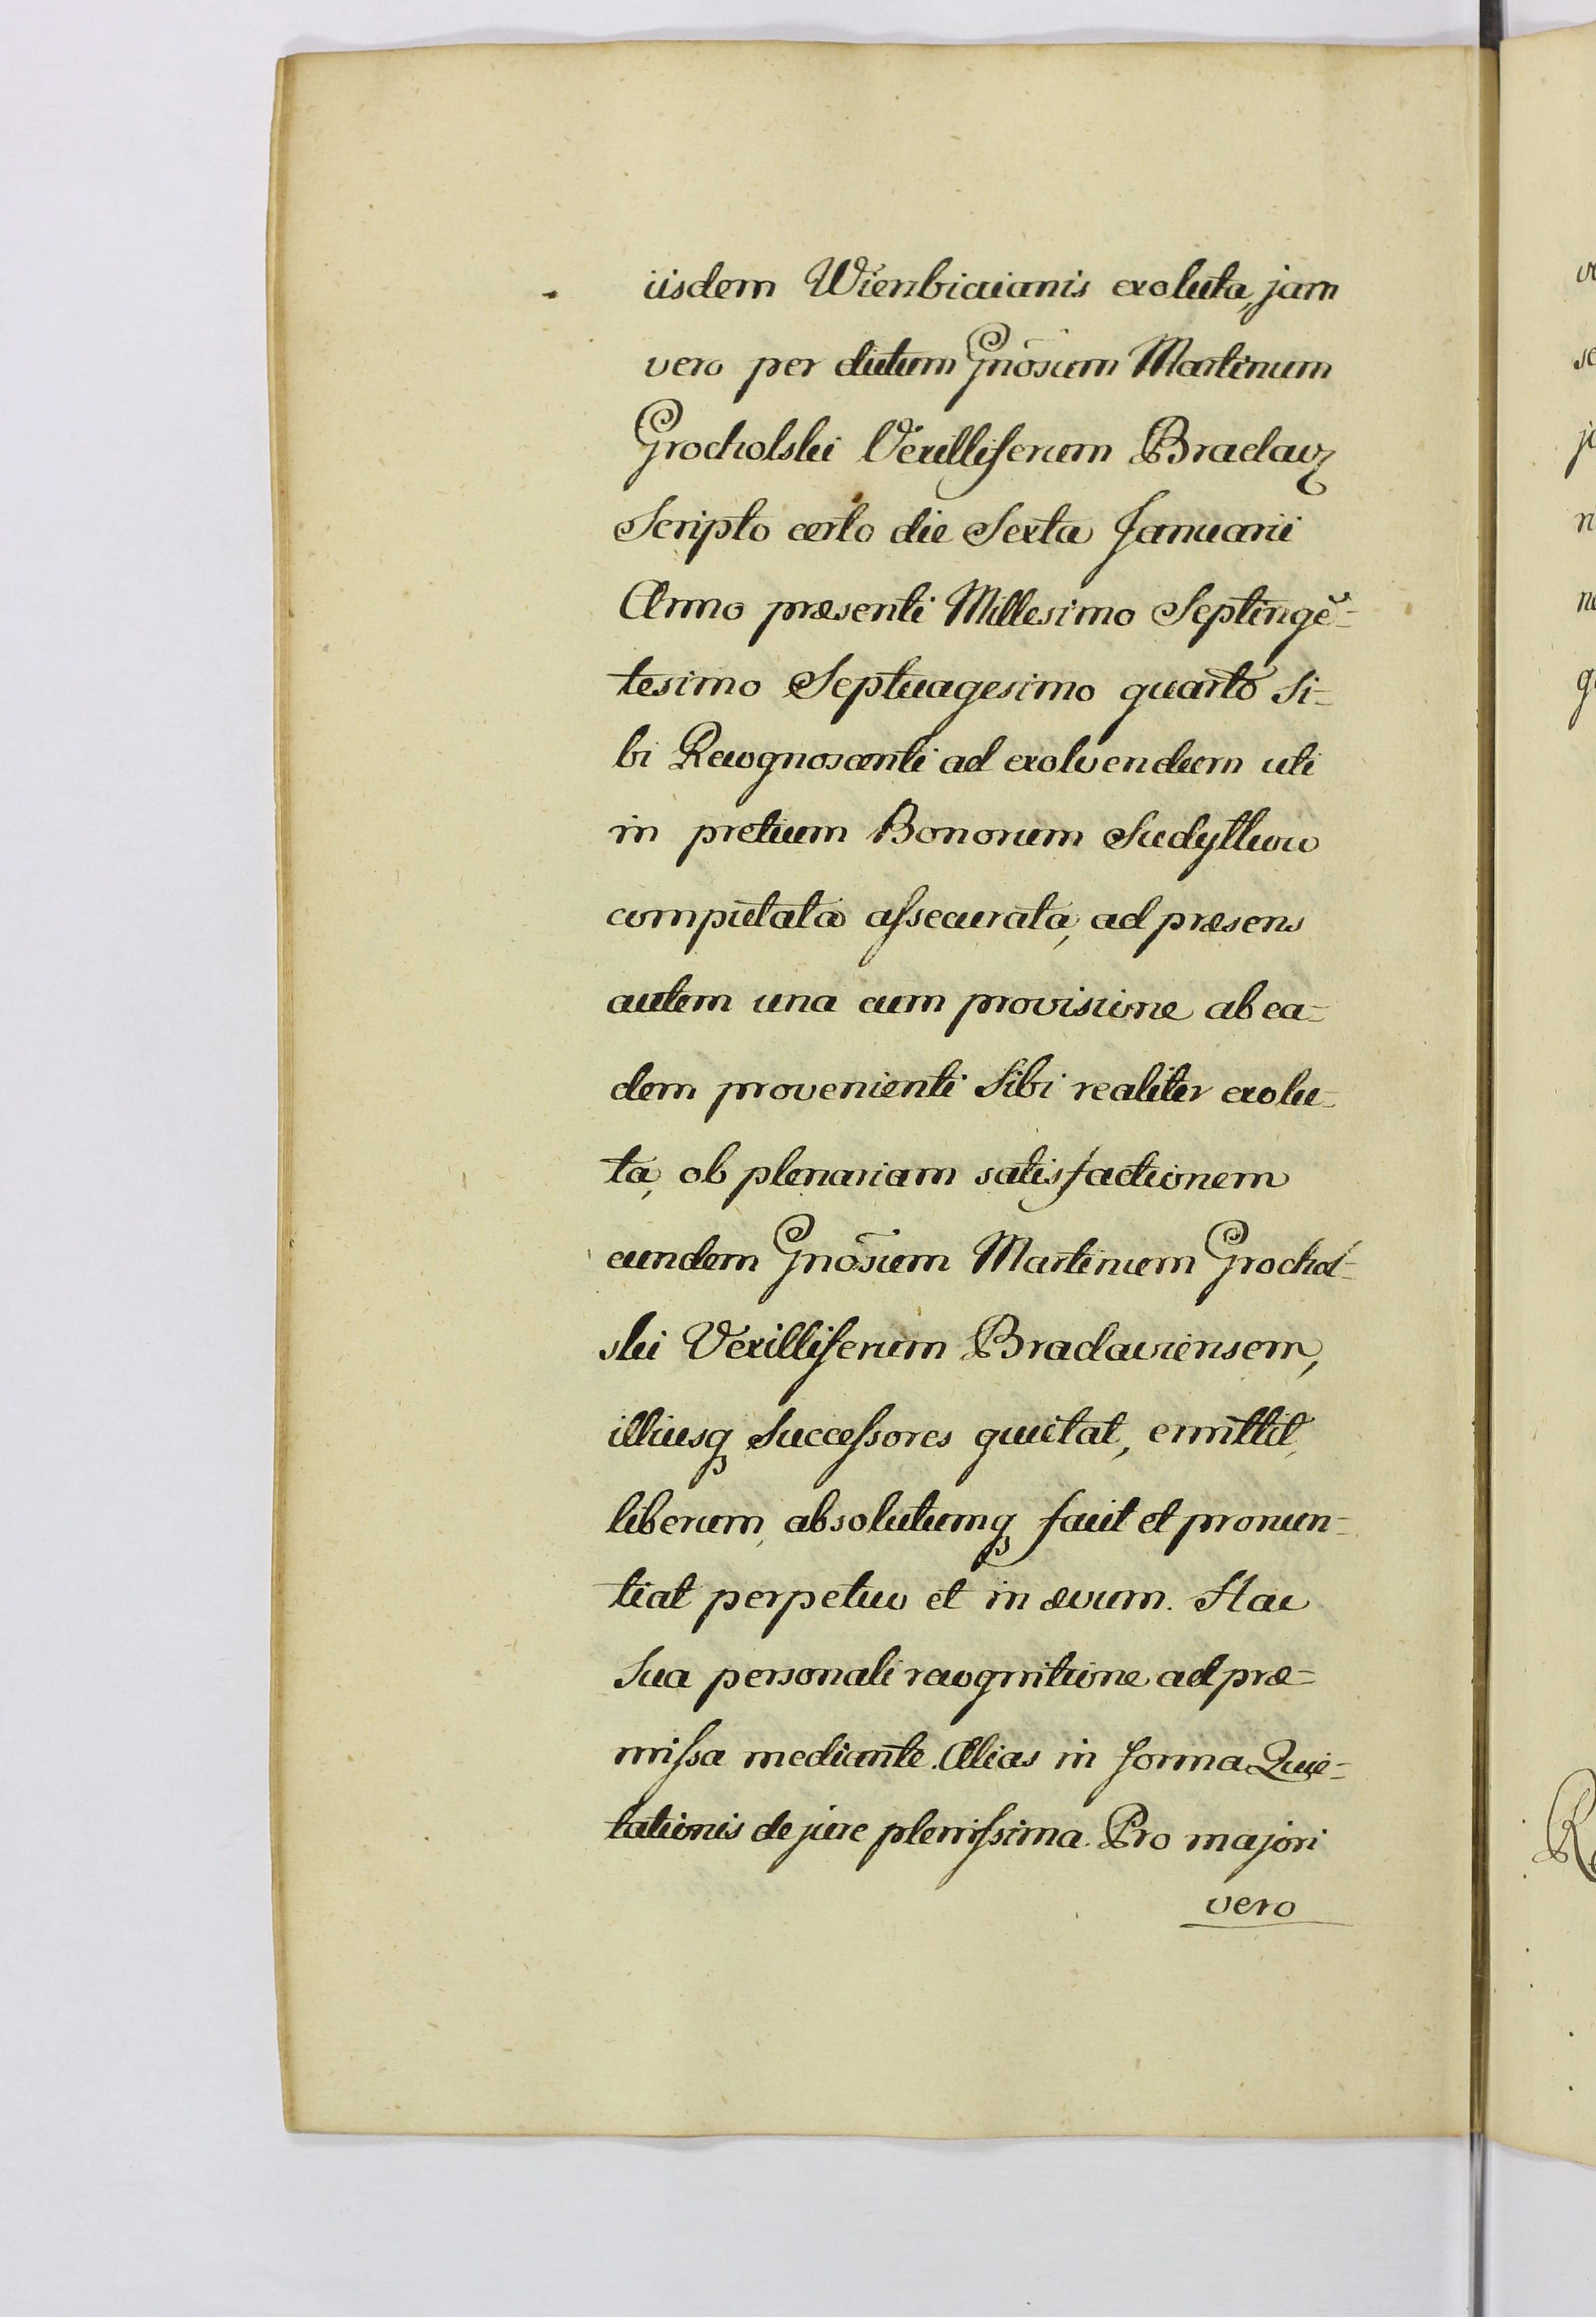 iisdem Wierzbickianis exoluta, jam
vero per dictum Gnōsum Martinum
Grocholski Vexilliferum Braclavꝫ
Scripto certo die Sexta Januarii
Anno præsenti Millesimo Septingē-
tesimo Septuagesimo quarto Si-
bi Recognoscenti ad exolvendum uti
in pretium Bonorum Sudyłkow
computata assecurata, ad præsens
autem una cum provisione ab ea-
dem provenienti Sibi realiter exolu-
ta, ob plenariam satisfactionem
eundem Gnōsum Martinum Grochol-
ski Vexilliferum Braclaviensem,
illiusqꝫ Successores quietat, emittit,
liberum, absolutumqꝫ facit et pronun-
tiat perpetuo et in ævum. Hac
Sua personali recognitione ad præ-
missa mediante. Alias in forma Quie-
tationis de jure plenissima. Pro majori
vero